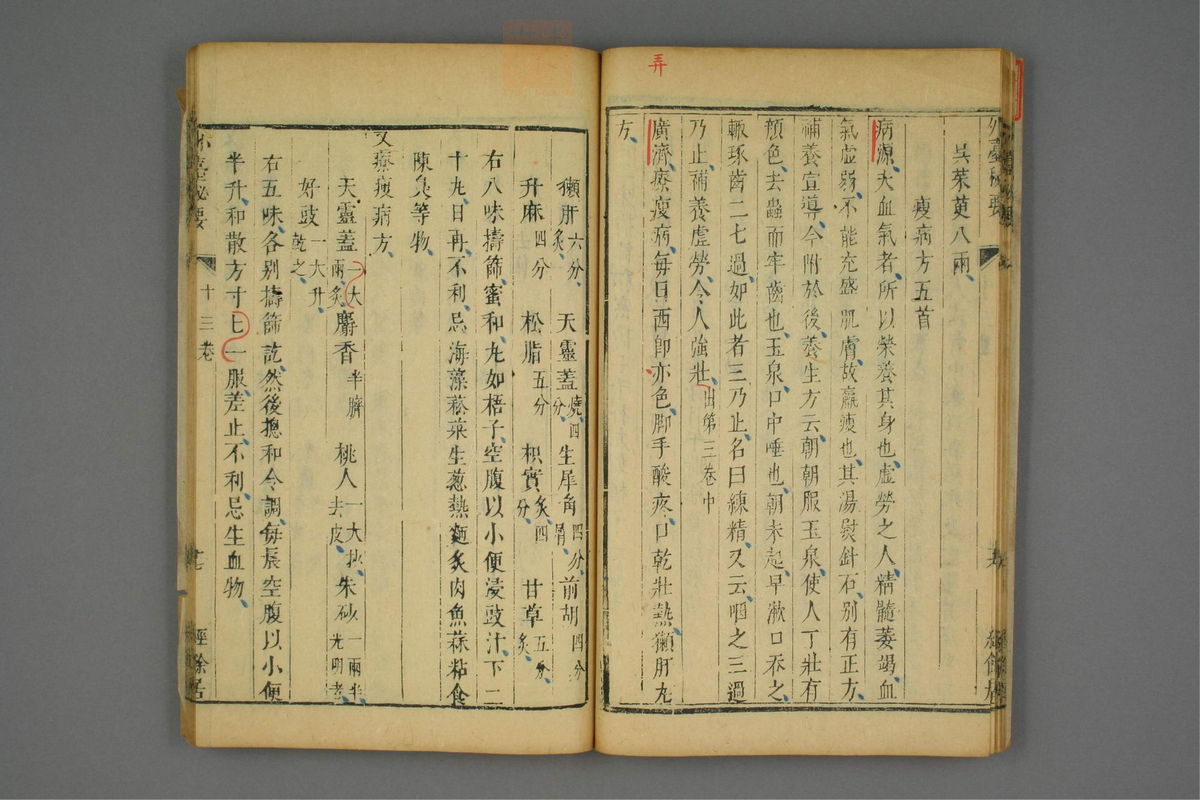 弄
外臺秘要
吳茱萸八兩
瘦病方五首
病源大血氣者所以榮養其身也虛勞之人精髓萎竭血
氣虛弱不能充盛肌膚故羸瘦也其湯熨針石別有正方
補養宣導今附於後養生方云朝朝服玉泉使人丁壯有
顏色去蟲而牢齒也玉泉口中唾也朝未起早漱口吞之
輒琢齒二七過如此者三乃止名曰練精又云咽之三過
乃止補養虛勞令人強壯出第三卷中
廣濟療瘦病每日西即赤色脚手酸疼口乾壯熱獺肝丸
方
獺肝六分炙 天靈蓋燒四分 生犀角四分屑 前胡四分
升麻四分 松脂五分 枳實炙四分 甘草五分炙
右八味擣篩蜜和丸如梧子空腹以小便浸豉汁下二
十丸日再不利忌海藻菘菜生葱熱麵炙肉魚蒜粘食
陳臭等物
又療瘦病方
天靈蓋一大兩炙 麝香半臍 桃人一大抄去皮 朱砂一兩半光明者
好豉一大升乾之
右五味各別擣篩訖然後摠和令調每晨空腹以小便
半升和散方寸匕一服差止不利忌生血物
外臺秘要
十三卷
經餘居